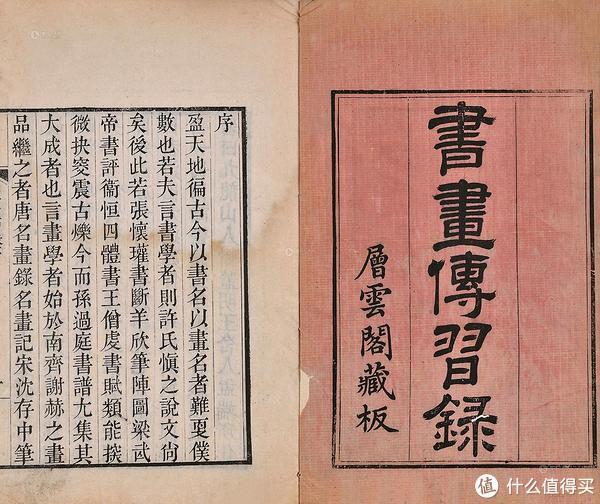 書畫傳習録
層雲閣藏板
序
盈天地徧古今以書名以畫名者難㪅僕
數也若夫言書學者則許氏愼之說文尙
矣後此若張懷瓘書斷羊欣筆陣圖梁武
帝書評衞恒四體書王僧虔書賦類能撰
微抉窔震古爍今而孫過庭書譜尢集其
大成者也言畫學者始於南齊謝赫之畫
品繼之者唐名畫錄名畫記宋沈存中筆
值 什么值得买